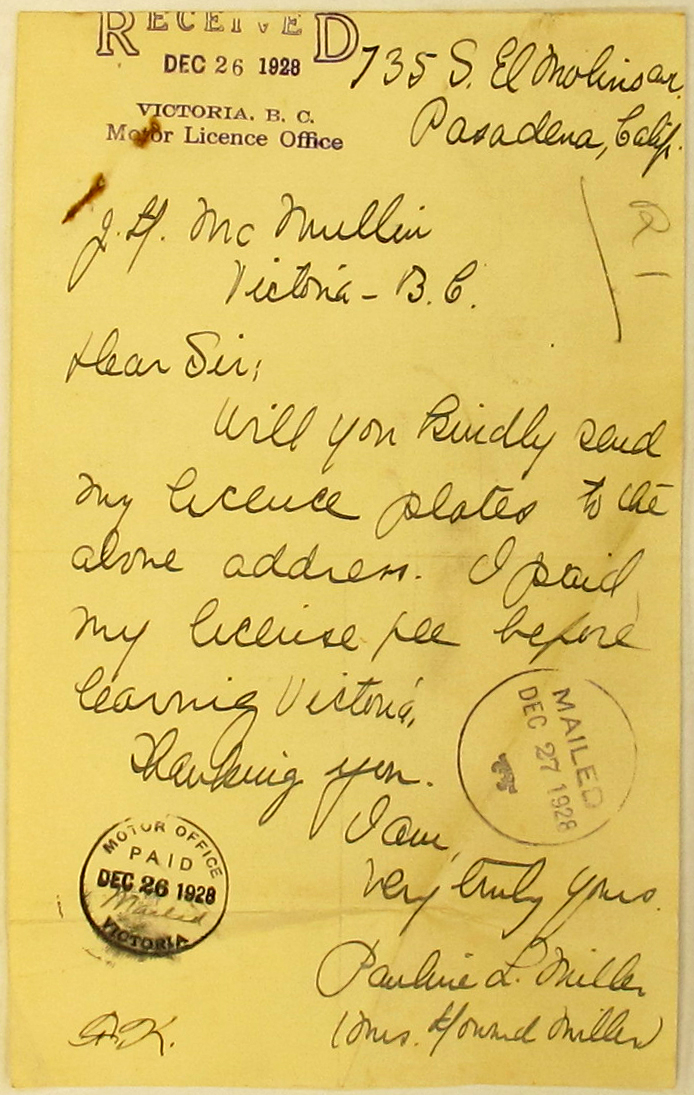 RECEIVED
DEC 26 1928
VICTORIA. B. C.
Motor Licence Office
735 S. El Molino av.
Pasadena, Calif.
J. H. McMullin
Victoria - B.C.
Dear Sir;
Will you kindly send
my licence plates to the
above address. I paid
my license fee before
leaving Victoria.
Thanking you.
I am,
Very truly yours.
Pauline L. Miller
(Mrs. Howard Miller)
MAILED
DEC 27 1928
MOTOR OFFICE
PAID
DEC 26 1928
Mailed
VICTORIA